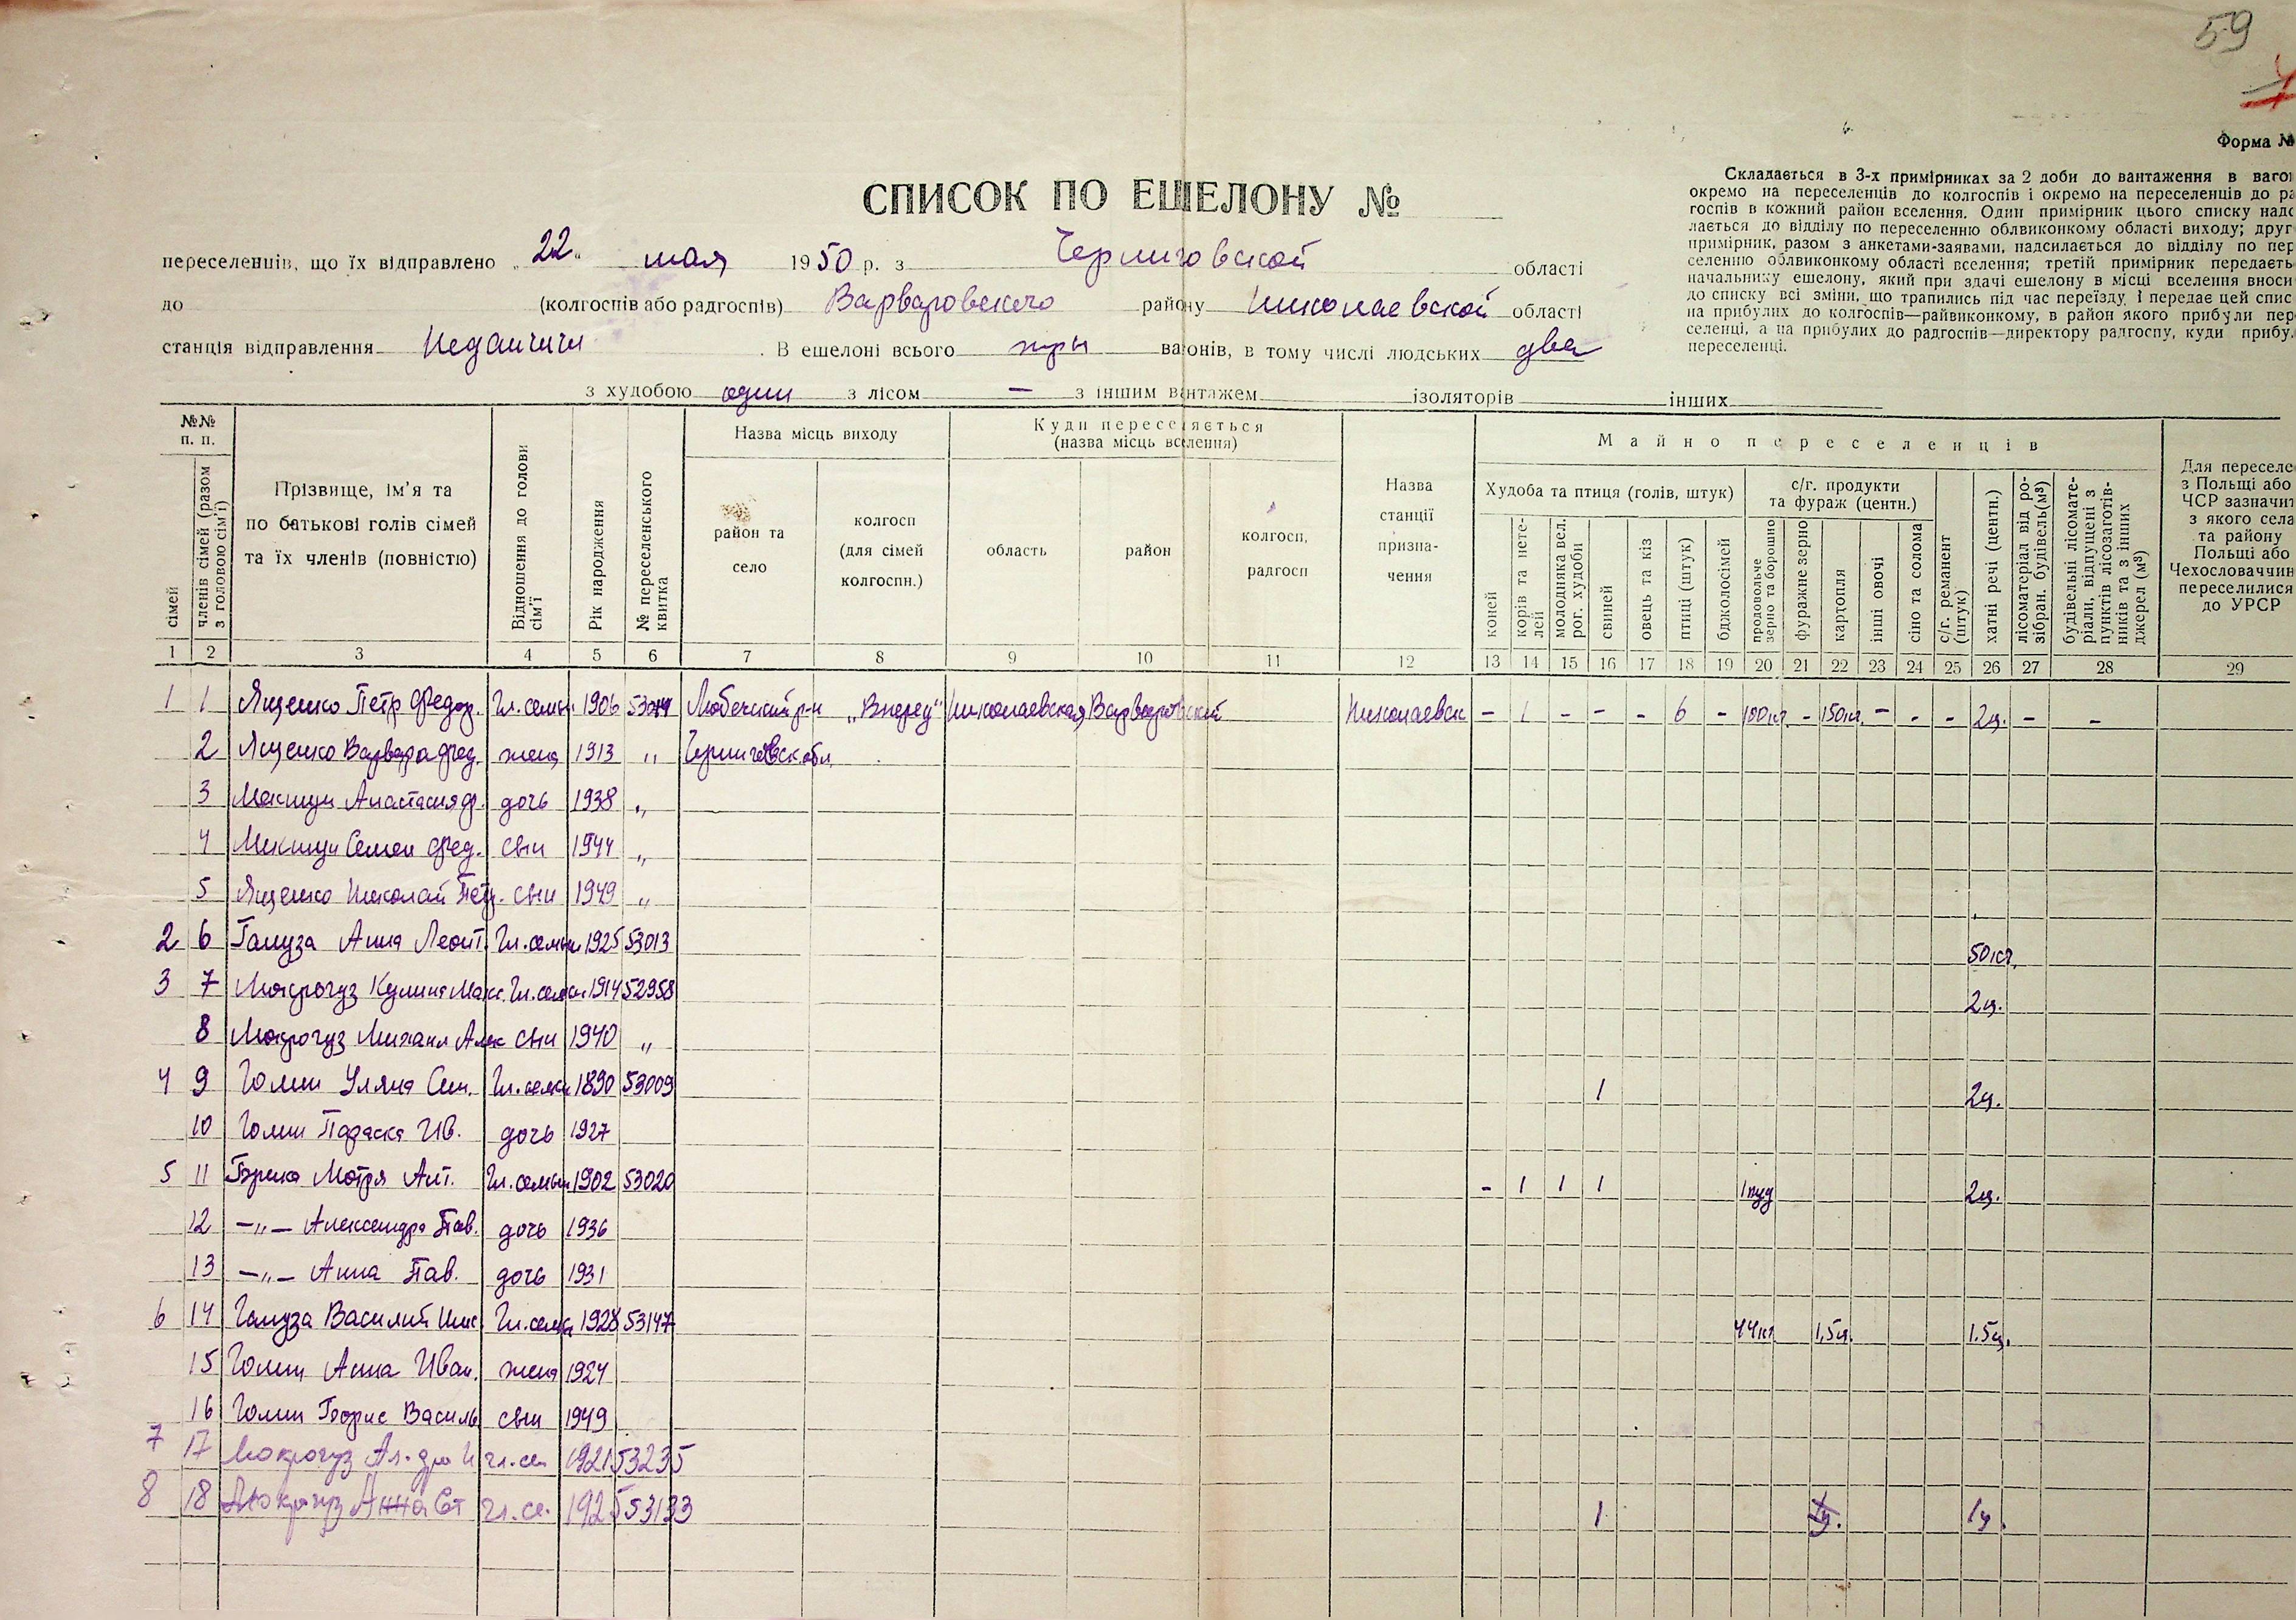 59
Форма №
Складається в 3-х примірниках за 2 доби до вантаження в ваго
окремо на переселенців до колгоспів і окремо на переселенців до ра
госпів в кожний район вселення. Один примірник цього списку надс
лається до відділу по переселенню облвиконкому області виходу; друг
примірник, разом з анкетами-заявами, надсилається до відділу по пер
селенню облвиконкому області вселення; третій примірник передаєть
начальнику ешелону, який при здачі ешелону в місці вселення вноси
до списку всі зміни, що трапились під час переїзду і передає цей спис
на прибулих до колгоспів—райвиконкому, в район якого прибули пер
селенці, а на прибулих до радгоспів—директору радгоспу, куди прибу
переселенці.
СПИСОК ПО ЕШЕЛОНУ №
переселенців, що їх відправлено „22“ мая 1950 р. з Черниговской області
до (колгоспів або радгоспів) Варваровского району Николаевской області
станція відправлення Неданчичи. В ешелоні всього три вагонів, в тому числі людських два
з худобою один з лісом — з іншим вантажем ізоляторів інших
№№ п. п.
сімей
членів сімей (разом з головою сім'ї)
Прізвище, ім'я та по батькові голів сімей та їх членів (повністю)
Відношення до голови сім'ї
Рік народження
№ переселенського квитка
Назва місць виходу
район та село
колгосп (для сімей колгоспн.)
Куди переселяється (назва місць вселення)
область
район
колгосп, радгосп
Назва станції призна-чення
Майно переселенців
Худоба та птиця (голів, штук)
коней
корів та нете-лей
молодняка вел. рог. худоби
свиней
овець та кіз
птиці (штук)
бджолосімей
с/г. продукти та фураж (центн.)
продовольче зерно та борошно
фуражне зерно
картопля
інші овочі
сіно та солома
с/г. реманент (штук)
хатні речі (центн.)
лісоматеріал від ро-зібран. будівель(м³)
будівельні лісомате-ріали, відпущені з пунктів лісозаготів-ників та з інших джерел (м³)
Для переселе
з Польщі або
ЧСР зазначит
з якого села
та району
Польщі або
Чехословаччин
переселилися
до УРСР
1 2 3 4 5 6 7 8 9 10 11 12 13 14 15 16 17 18 19 20 21 22 23 24 25 26 27 28 29
1 1 Ященко Петр Федор. Гл. семьи 1906 Любечский р-н „Вперед" Николаевская Варваровский Николаевск - 1 - - - 6 - 100кг - 150кг. - - - 2ц. - -
2 Ященко Варвара Фед. жена 1913 „ Черниговск. обл.
3 Анастасия Ф. дочь 1938 „
4 Семен Фед. сын 1944 „
5 Ященко Николай Петр. сын 1949 „
2 6 Гануза Анна Леонт. Гл. семьи 1925 53013 50кг.
3 7 Мокрогуз Кулина Макс. Гл. семьи 1914 52958 2ц.
8 Мокрогуз Михаил Алек сын 1940 „
4 9 Уляна Сем. Гл. семьи 1890 53009 1 2ц.
10 Параска Ив. дочь 1927
5 11 Мотря Ант. Гл. семьи 1902 53020 - 1 1 1 1 пуд 2ц.
12 —„— Александра Пав. дочь 1936
13 —„— Анна Пав. дочь 1931
6 14 Гануза Василий Гл. семьи 1928 53147 44кг 1,5ц. 1.5ц.
15 Анна Иван. жена 1924
16 Борис Василь сын 1949
7 17 Мокрогуз Ал-др И гл. се 1921 53235
8 18 Мокрогуз Анна Ст гл. се. 1925 53133 1 1ц. 1ц.